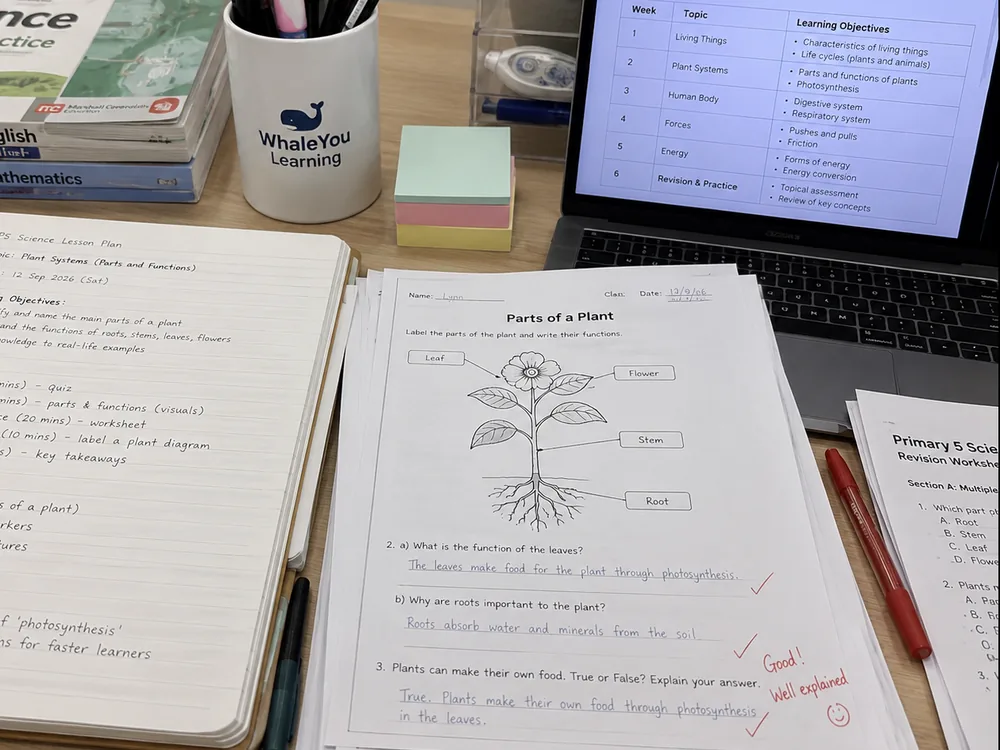 nce
ctice
Marshall Cavendish
Education
glish
athematics
WhaleYou
Learning
Week Topic Learning Objectives
1 Living Things • Characteristics of living things
• Life cycles (plants and animals)
2 Plant Systems • Parts and functions of plants
• Photosynthesis
3 Human Body • Digestive system
• Respiratory system
4 Forces • Pushes and pulls
• Friction
5 Energy • Forms of energy
• Energy conversion
6 Revision & Practice • Topical assessment
• Review of key concepts
P5 Science Lesson Plan
ic: Plant Systems (Parts and Functions)
: 12 Sep 2026 (Sat)
g Objectives:
fy and name the main parts of a plant
and the functions of roots, stems, leaves, flowers
owledge to real-life examples
mins) – quiz
mins) – parts & functions (visuals)
ce (20 mins) – worksheet
(10 mins) – label a plant diagram
s) – key takeaways
s of a plant)
rkers
tures
f 'photosynthesis'
ns for faster learners
Name: Lynn Clas: Date: 12/9/06
Parts of a Plant
Label the parts of the plant and write their functions.
Leaf
Flower
Stem
Root
2. a) What is the function of the leaves?
The leaves make food for the plant through photosynthesis.
b) Why are roots important to the plant?
Roots absorb water and minerals from the soil
3. Plants can make their own food. True or False? Explain your answer.
True. Plants make their own food through photosynthesis
in the leaves.
Good!
Well explained
Primary 5 Scie
Revision Workshe
Section A: Multiple
1. Which part o
A. Root
B. Stem
C. Leaf
D. Flowe
2. Plants
A.
B.
C.
3.